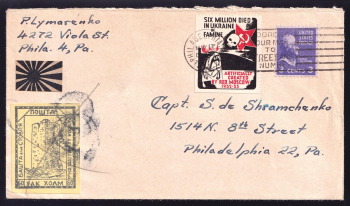 P. Lymarenko
4272 Viola St.
Phila. 4, Pa.
SIX MILLION DIED
IN UKRAINE
OF FAMINE
ARTIFICIALLY
CREATED
BY RED MOSCOW
1932-33
YOUR M
TO
STREET
NUM
ПОШТА
РАК ХОЛМ
Capt. S. de Shramchenko
1514 N. 8th Street
Philadelphia 22, Pa.